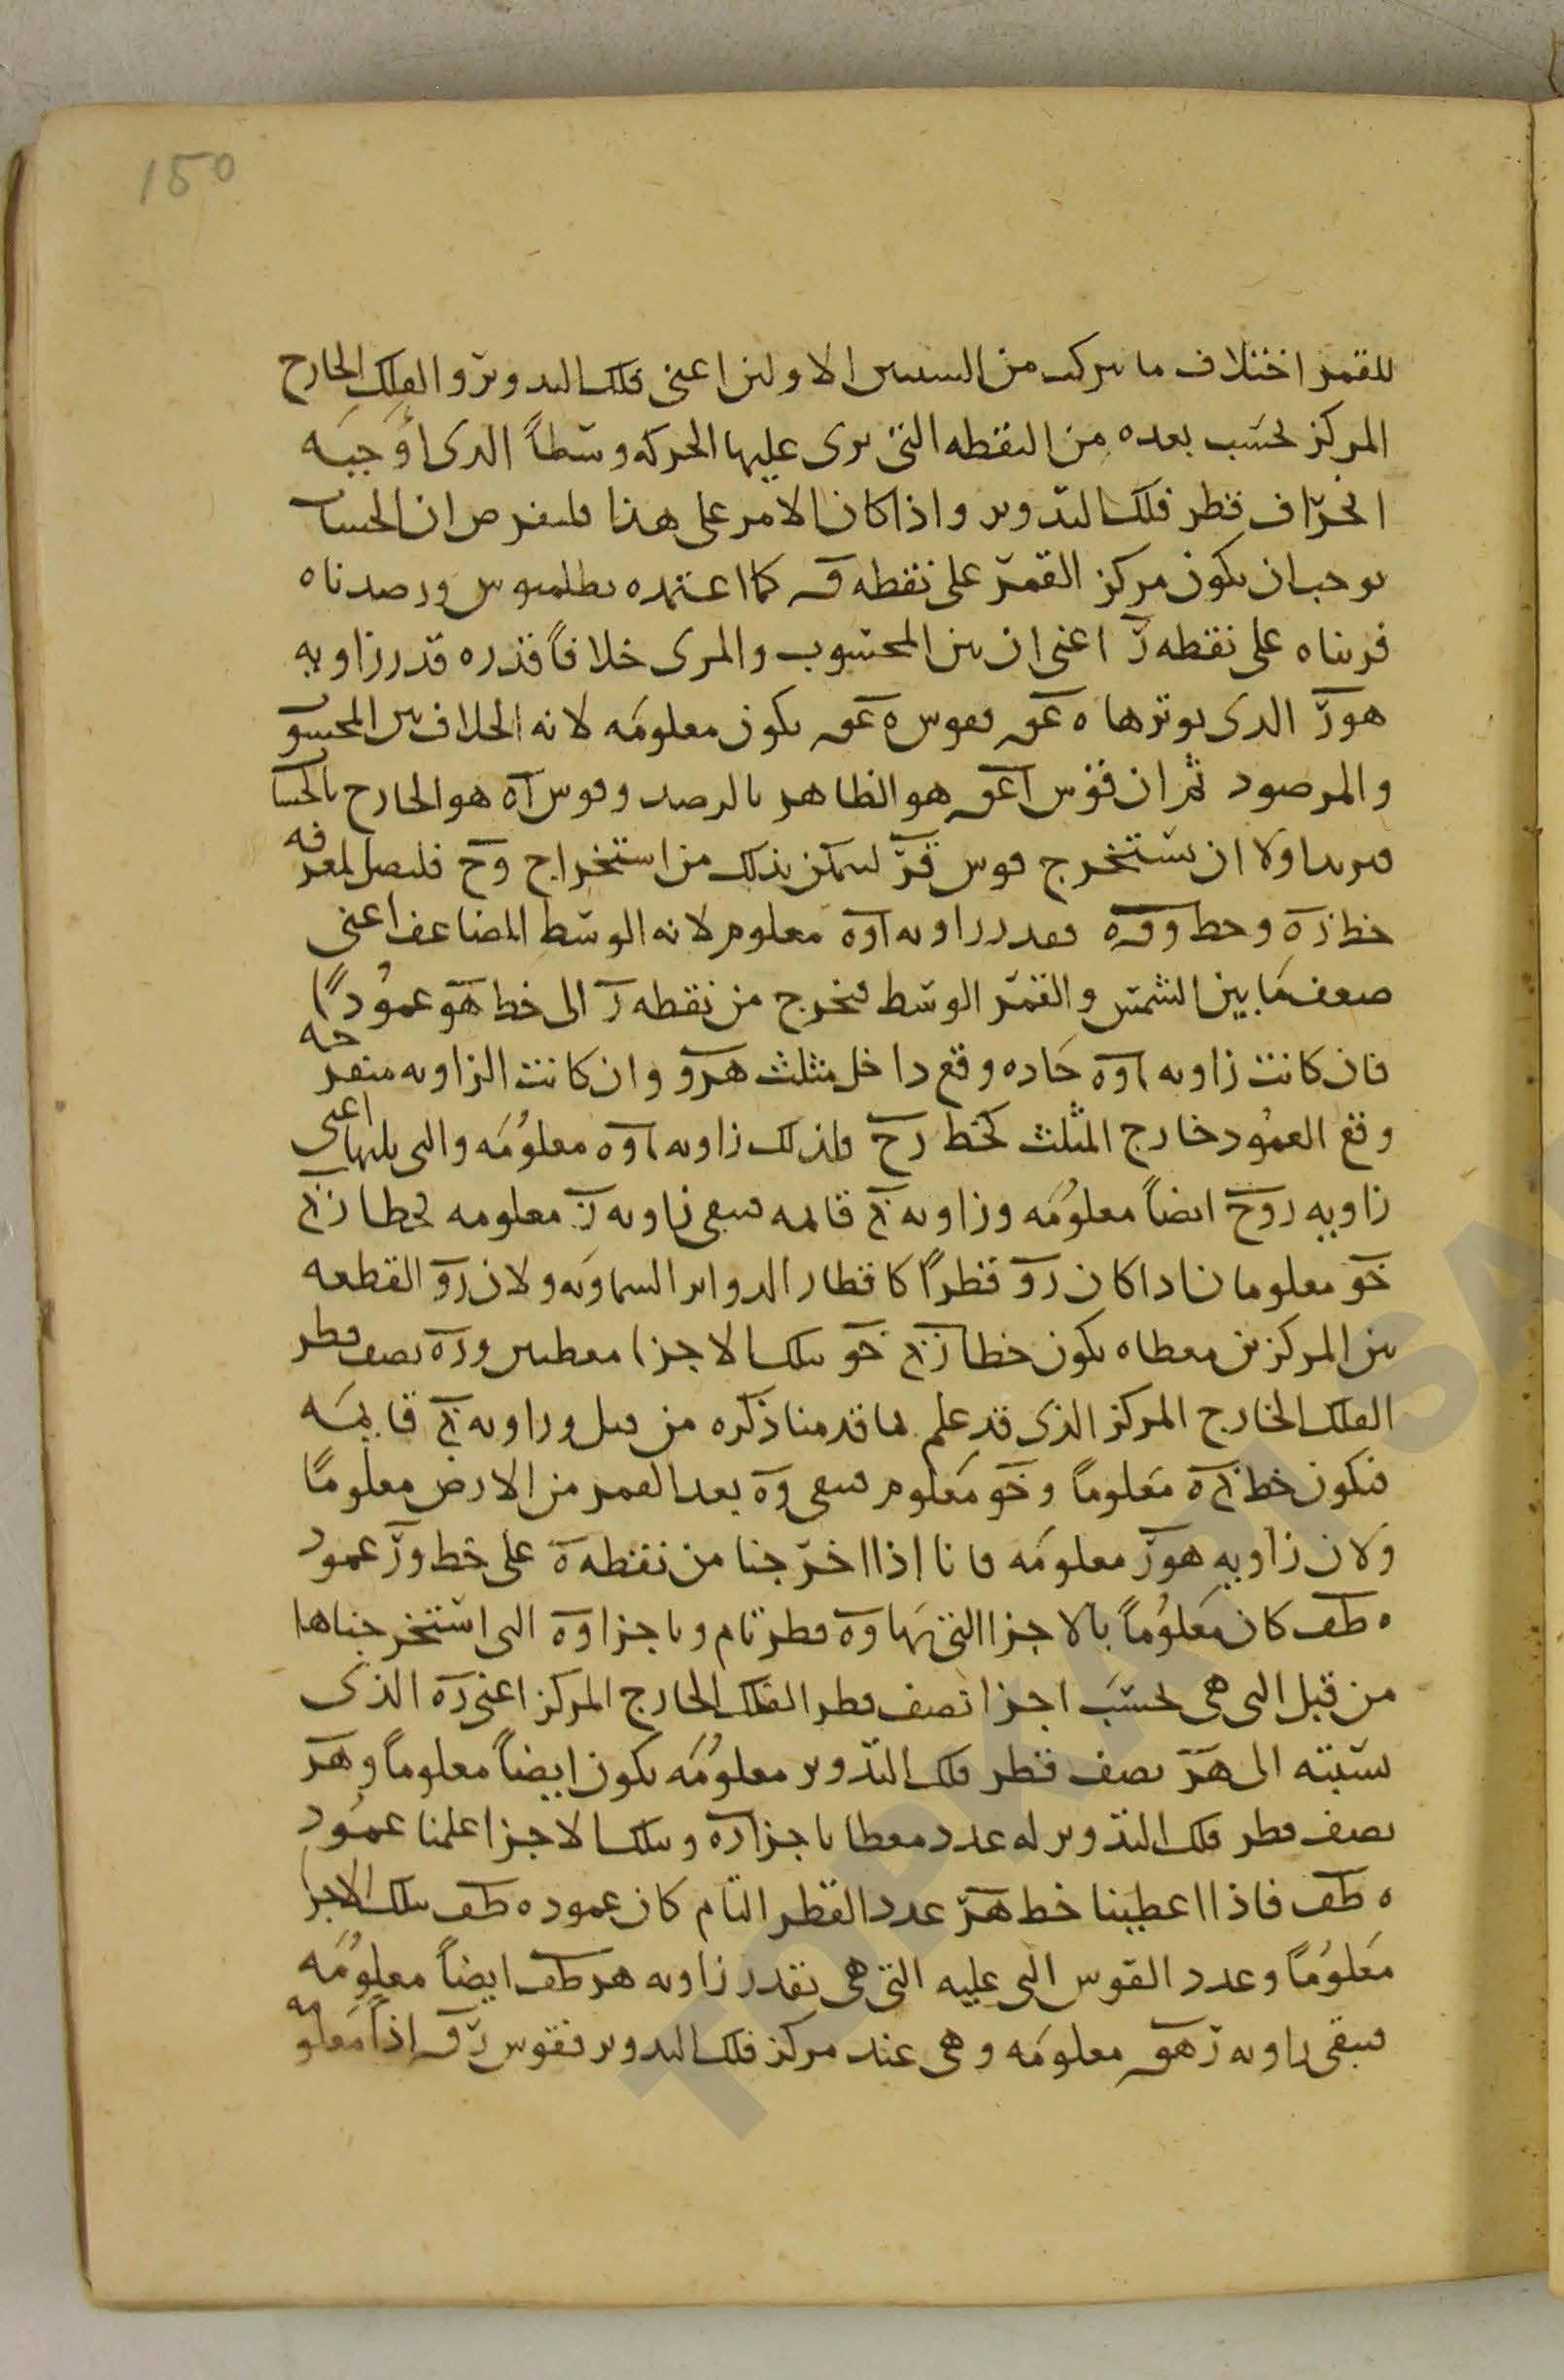 150
للقمر اختلاف ما يتركب من السببين الاولين اعنى فلك التدوير والفلك الخارج
المركز بحسب بعده من النقطه التى يرى عليها الحركه وسطاً الذى اوجبه
انحراف قطر فلك التدوير واذا كان الامر على هذا فليفرض ان الحساب
يوجب ان يكون مركز القمر على نقطه ق كما اعتمده بطلميوس ورصدناه
فريناه على نقطه ز اعنى ان بين المحسوب والمرى خلافاً قدره قدر زاويه
هوز الذى يوترها ه عق فقوس ه عق يكون معلومه لانه الخلاف بين المحسوب
والمرصود ثم ان قوس اعق هو الظاهر بالرصد وقوس اه هو الخارج بالحساب
فنريد اولا ان نستخرج قوس قز ليمكن بذلك من استخراج وح فليصل لمعرفه
خط زه وخط وقه فقدر زاويه اوه معلوم لانه الوسط المضاعف اعنى
ضعف ما بين الشمس والقمر الوسط فنخرج من نقطه ر الى خط هو عموداً
فان كانت زاويه اوه حاده وقع داخل مثلث هرو وان كانت الزاويه منفرجه
وقع العمود خارج المثلث كخط رح ولذلك زاويه اوه معلومه والتى يليها اعنى
زاويه روح ايضاً معلومه وزاويه ح قايمه فيبقى زاويه ر معلومه فخطا رح
حو معلومان اذا كان رو قطراً كاقطار الدواير السماويه ولان رو القطعه
بين المركزين معطاه يكون خطا رح حو بتلك الاجزا معطيين وره نصف قطر
الفلك الخارج المركز الذى قد علم بما قدمنا ذكره من قبل وزاويه ح قايمه
فيكون خط ح ه معلوماً وحو معلوم فيبقى وه بعد القمر من الارض معلوماً
ولان زاويه هوز معلومه فانا اذا اخرجنا من نقطه ه على خط وز عمود
ه طف كان معلوماً بالاجزا التى بها وه قطر تام وباجزا وه التى استخرجناها
من قبل التى هى بحسب اجزا نصف قطر الفلك الخارج المركز اعنى ره الذى
نسبته الى هز نصف قطر فلك التدوير معلومه يكون ايضاً معلوماً وهز
نصف قطر فلك التدوير له عدد معطا باجزا ره وبتلك الاجزا علمنا عمود
ه طف فاذا اعطينا خط هز عدد القطر التام كان عمود ه طف بتلك الاجزا
معلوماً وعدد القوس التى عليه التى هى بقدر زاويه هر طف ايضاً معلومه
فيبقى زاويه زهق معلومه وهى عند مركز فلك التدوير فقوس زق اذاً معلومه